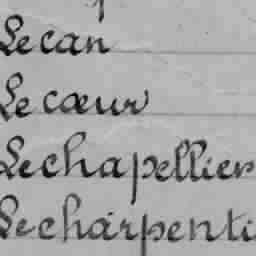 Lecan
Lecœur
Lechapellier
Lecharpenti